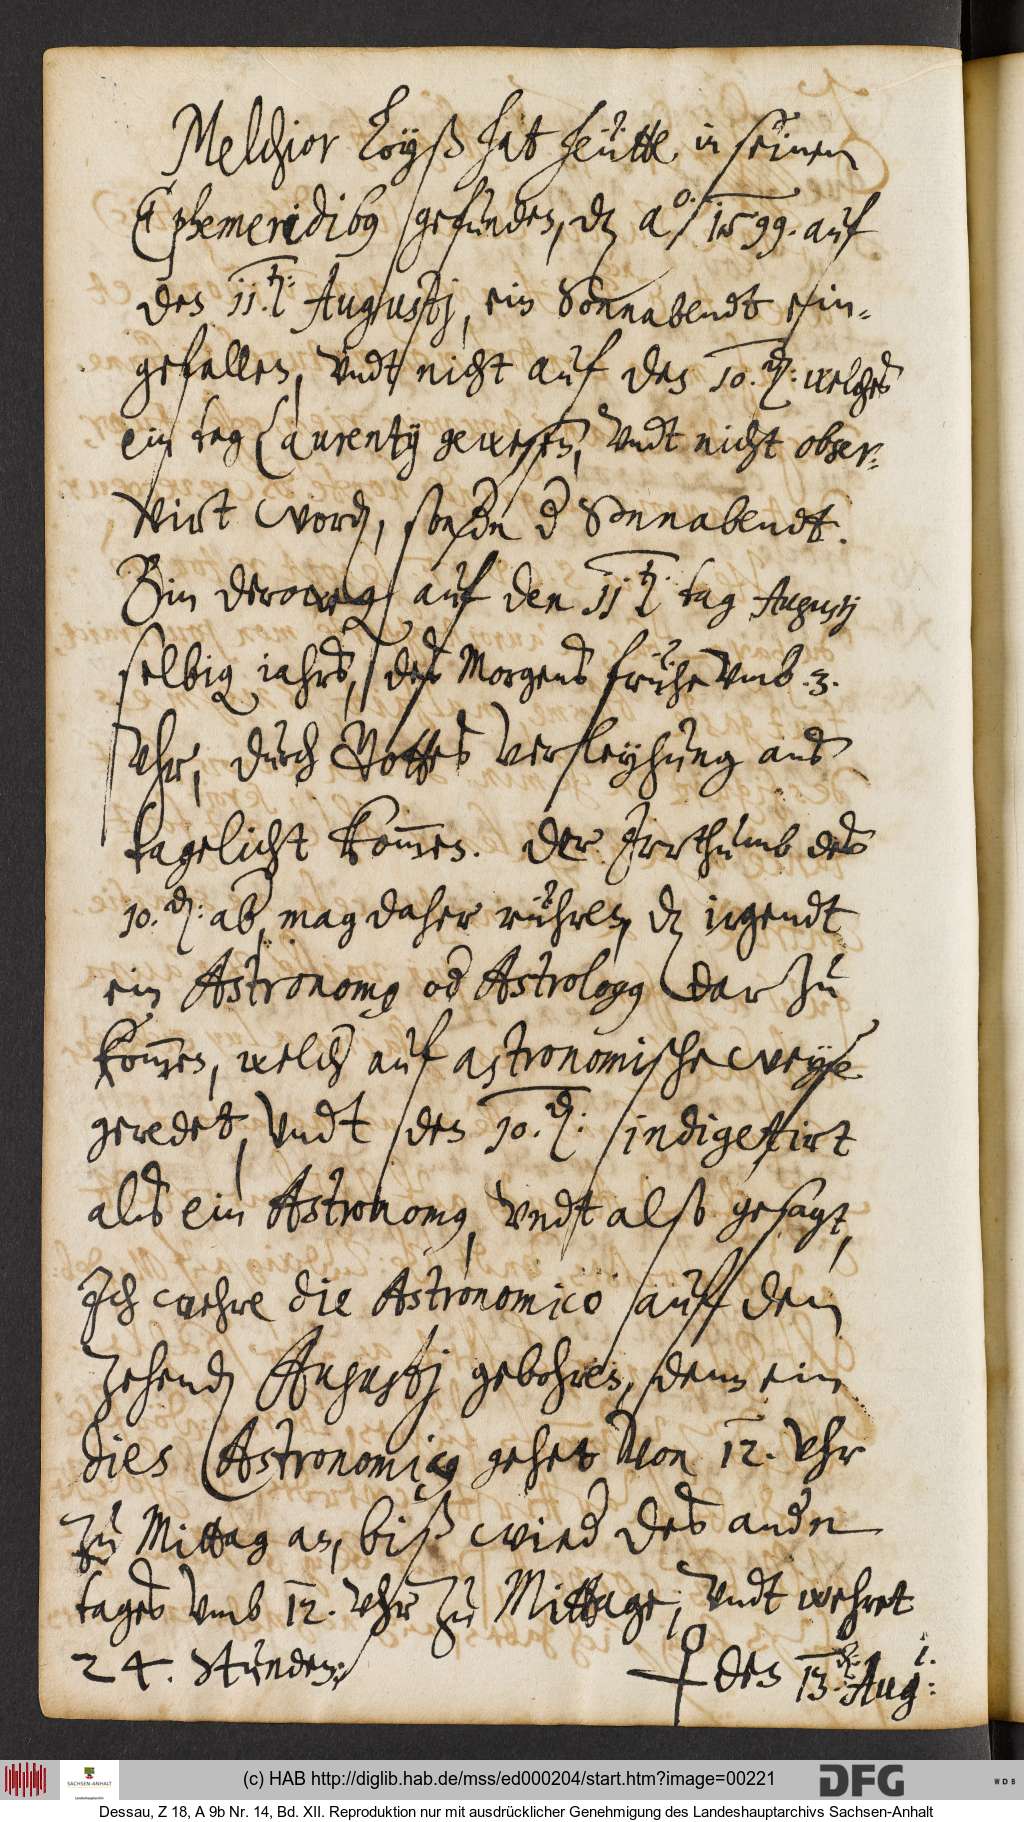 Melchior Loyß hat heutte in seinen
Ephemeridib9 gefunden, dz ao: 1599. auf
den 11.t: Augustj, ein Sonnabendt ein-
gefallen, undt nicht auf den 10.d: welches
ein tag Laurentij gewesen, undt nicht obser-
virt word, sondn d Sonnabendt.
Bin derowegen auf den 11.t tag Augustj
selbig iahrs, des Morgens frühe umb .3.
Uhr, durch Gottes verleyhung ans
tagelicht kom̄en. Der Irrthumb des
10.d: ab, mag daher rühren, dz irgendt
ein Astronom9 od Astrolog9 dar zu
kom̄en, welch auf astronomische weyse
geredet, undt den 10.d: indigetirt
als ein Astronom9, undt also gesagt,
Ich wehre die Astronomico auff den
zehend Augustj gebohren, denn ein
dies Astronomic9 gehet von 12. Uhr
zu Mittag an, biß wied des andn
tages umb 12. Uhr zu Mittage, undt wehret
24. Stunden:/ den 13.d: Aug: i.
(c) HAB http://diglib.hab.de/mss/ed000204/start.htm?image=00221
SACHSEN-ANHALT
DFG
WDB
Dessau, Z 18, A 9b Nr. 14, Bd. XII. Reproduktion nur mit ausdrücklicher Genehmigung des Landeshauptarchivs Sachsen-Anhalt